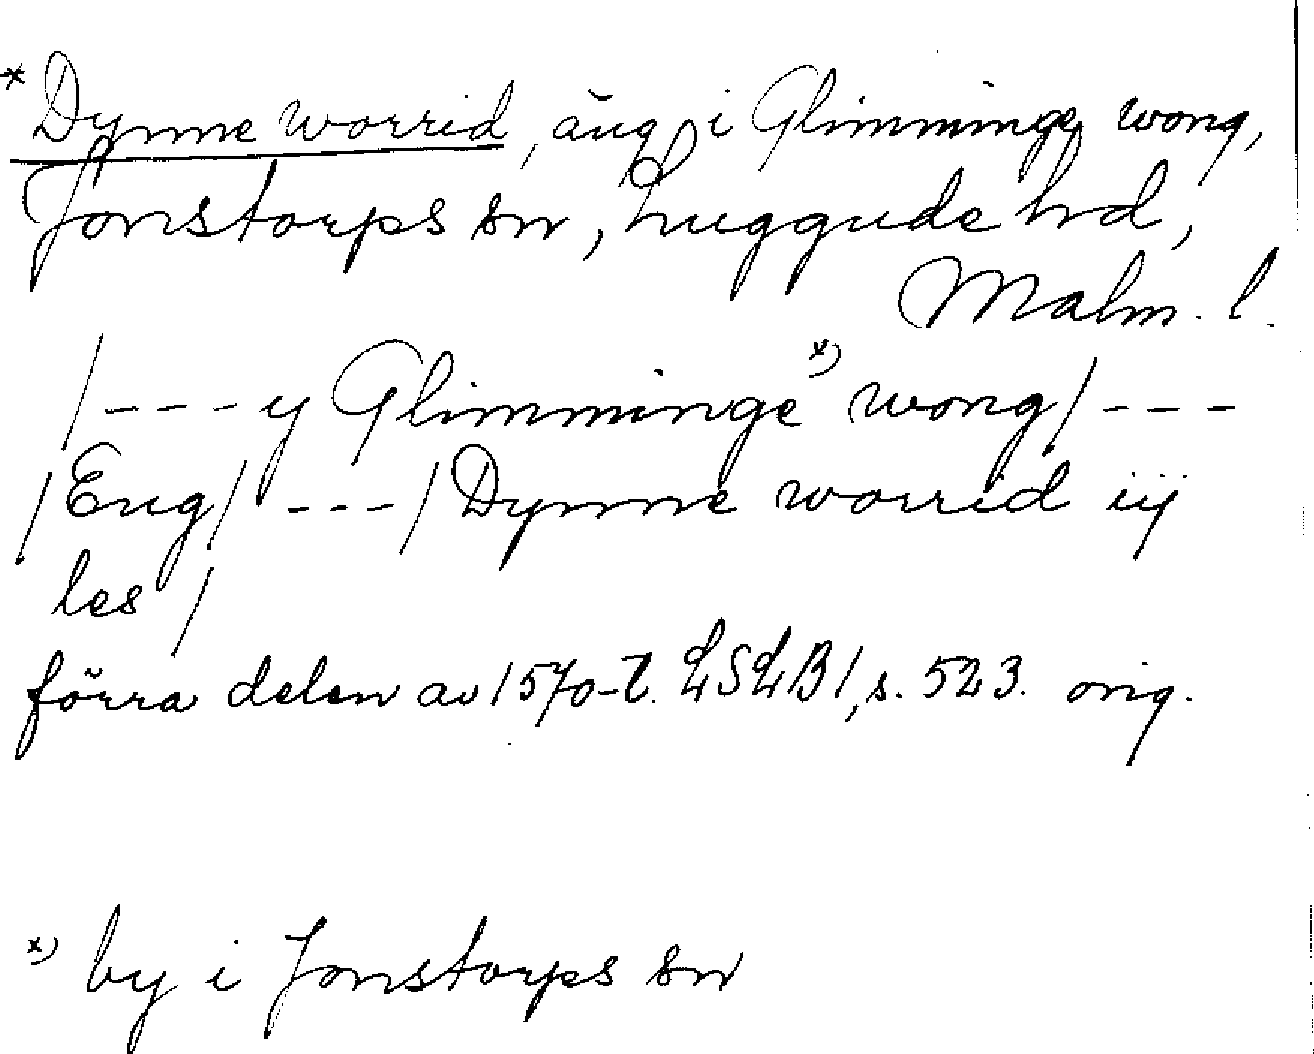 * Dynne worrid, äng i Glimminge wong,
Jonstorps sn, Luggude hd,
Malm. l.
/---y Glimminge x) wong/---
/Eng/ ---/Dynne worrid iij
les /
förra delen av 1570-t. LSLB1, s. 523. orig.
x) by i Jonstorps sn